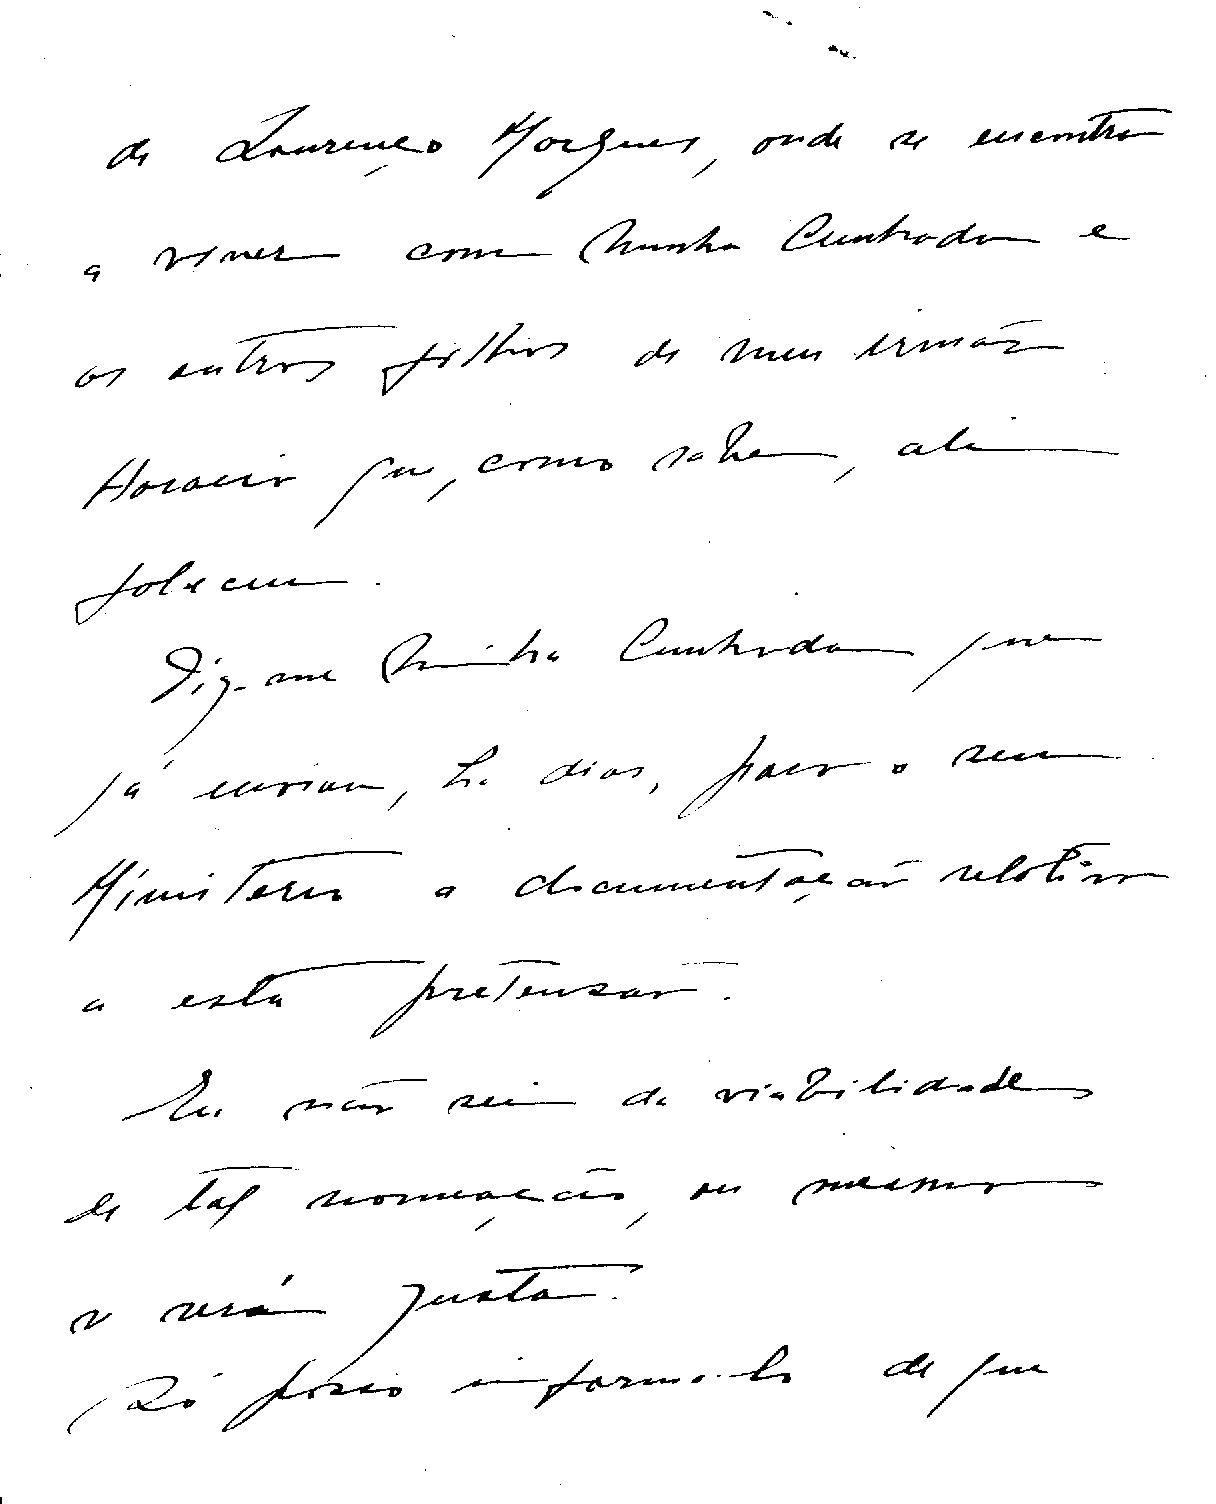 de Lourenço Marques, onde se encontra
a viver com minha Cunhada e
os outros filhos de meu irmão
Horacio que, como sabe, ali
faleceu.
Diz-me minha Cunhada que
já enviou, ha dias, para o seu
Ministerio a documentação relativa
a esta pretensão.
Eu não sei da viabilidade
de tal nomeação, ou mesmo
se será justa.
Só posso informa-lo de que